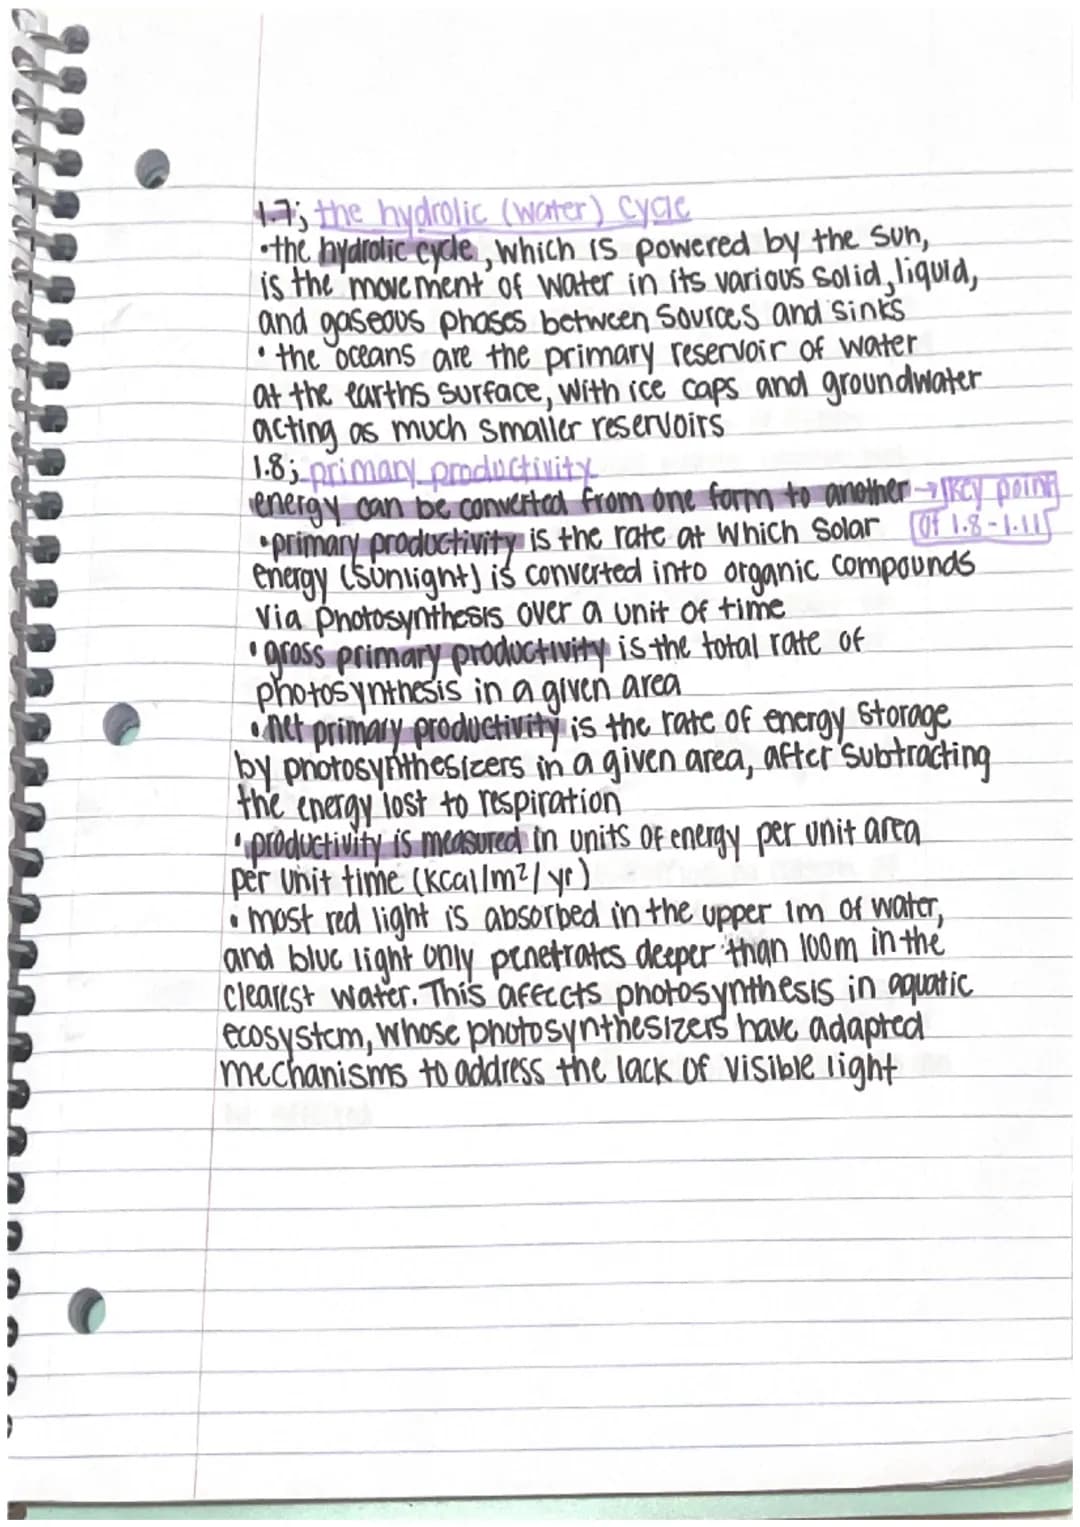 1.7; the hydrolic (water) cycle
•the hydrolic cycle, which is powered by the sun,
is the movement of water in its various solid, liquid,
and gaseous phases between sources and sinks
• the oceans are the primary reservoir of water
at the earths surface, with ice caps and groundwater
acting as much smaller reservoirs
1.8; primary productivity
energy can be converted from one form to another → key point
of 1.8-1.11
•primary productivity is the rate at which solar
energy (sunlight) is converted into organic compounds
via photosynthesis over a unit of time
• gross primary productivity is the total rate of
photosynthesis in a given area
• net primary productivity is the rate of energy storage
by photosynthesizers in a given area, after subtracting
the energy lost to respiration
• productivity is measured in units of energy per unit area
per unit time (kcal/m²/yr)
• most red light is absorbed in the upper 1m of water,
and blue light only penetrates deeper than 100m in the
clearest water. This affects photosynthesis in aquatic
ecosystem, whose photosynthesizers have adapted
mechanisms to address the lack of visible light